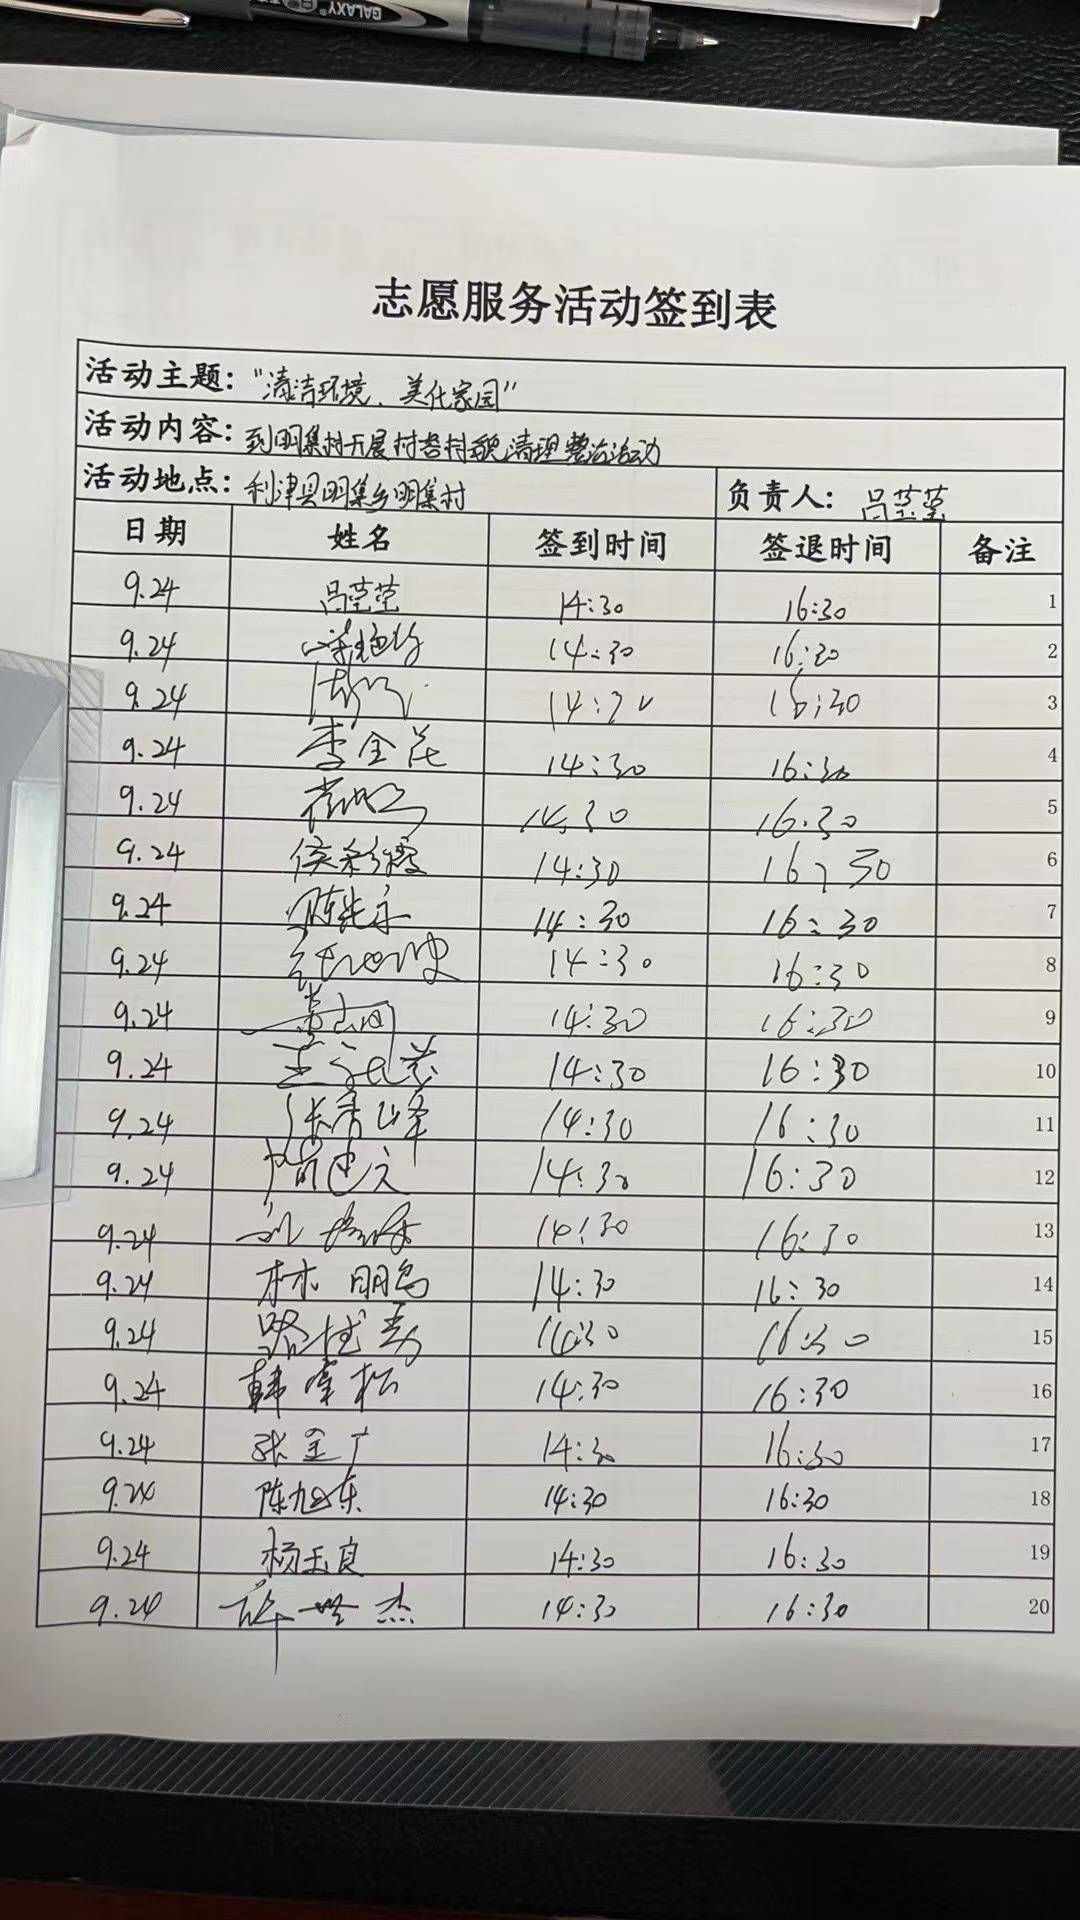 GALAXY
志愿服务活动签到表
活动主题：“清洁环境、美化家园”
活动内容：到明集村开展村容村貌清理整治活动
活动地点：利津县明集乡明集村 负责人：吕莹莹
日期 姓名 签到时间 签退时间 备注
9.24 吕莹莹 14:30 16:30 1
9.24 14:30 16:30 2
9.24 14:30 16:30 3
9.24 李全花 14:30 16:30 4
9.24 14:30 16.30 5
9.24 侯彩霞 14:30 16:30 6
9.24 陈先永 14:30 16:30 7
9.24 14:30 16:30 8
9.24 14:30 16:30 9
9.24 14:30 16:30 10
9.24 张秀峰 14:30 16:30 11
9.24 14:30 16:30 12
9.24 14:30 16:30 13
9.24 林明岛 14:30 16:30 14
9.24 14:30 16:30 15
9.24 韩奎松 14:30 16:30 16
9.24 张金广 14:30 16:30 17
9.24 陈旭东 14:30 16:30 18
9.24 杨玉良 14:30 16:30 19
9.24 杰 14:30 16:30 20